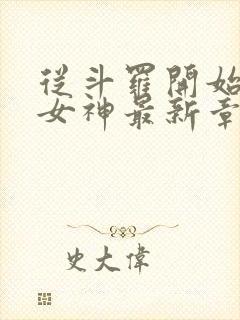 從斗羅開始
女神最新章
史大偉